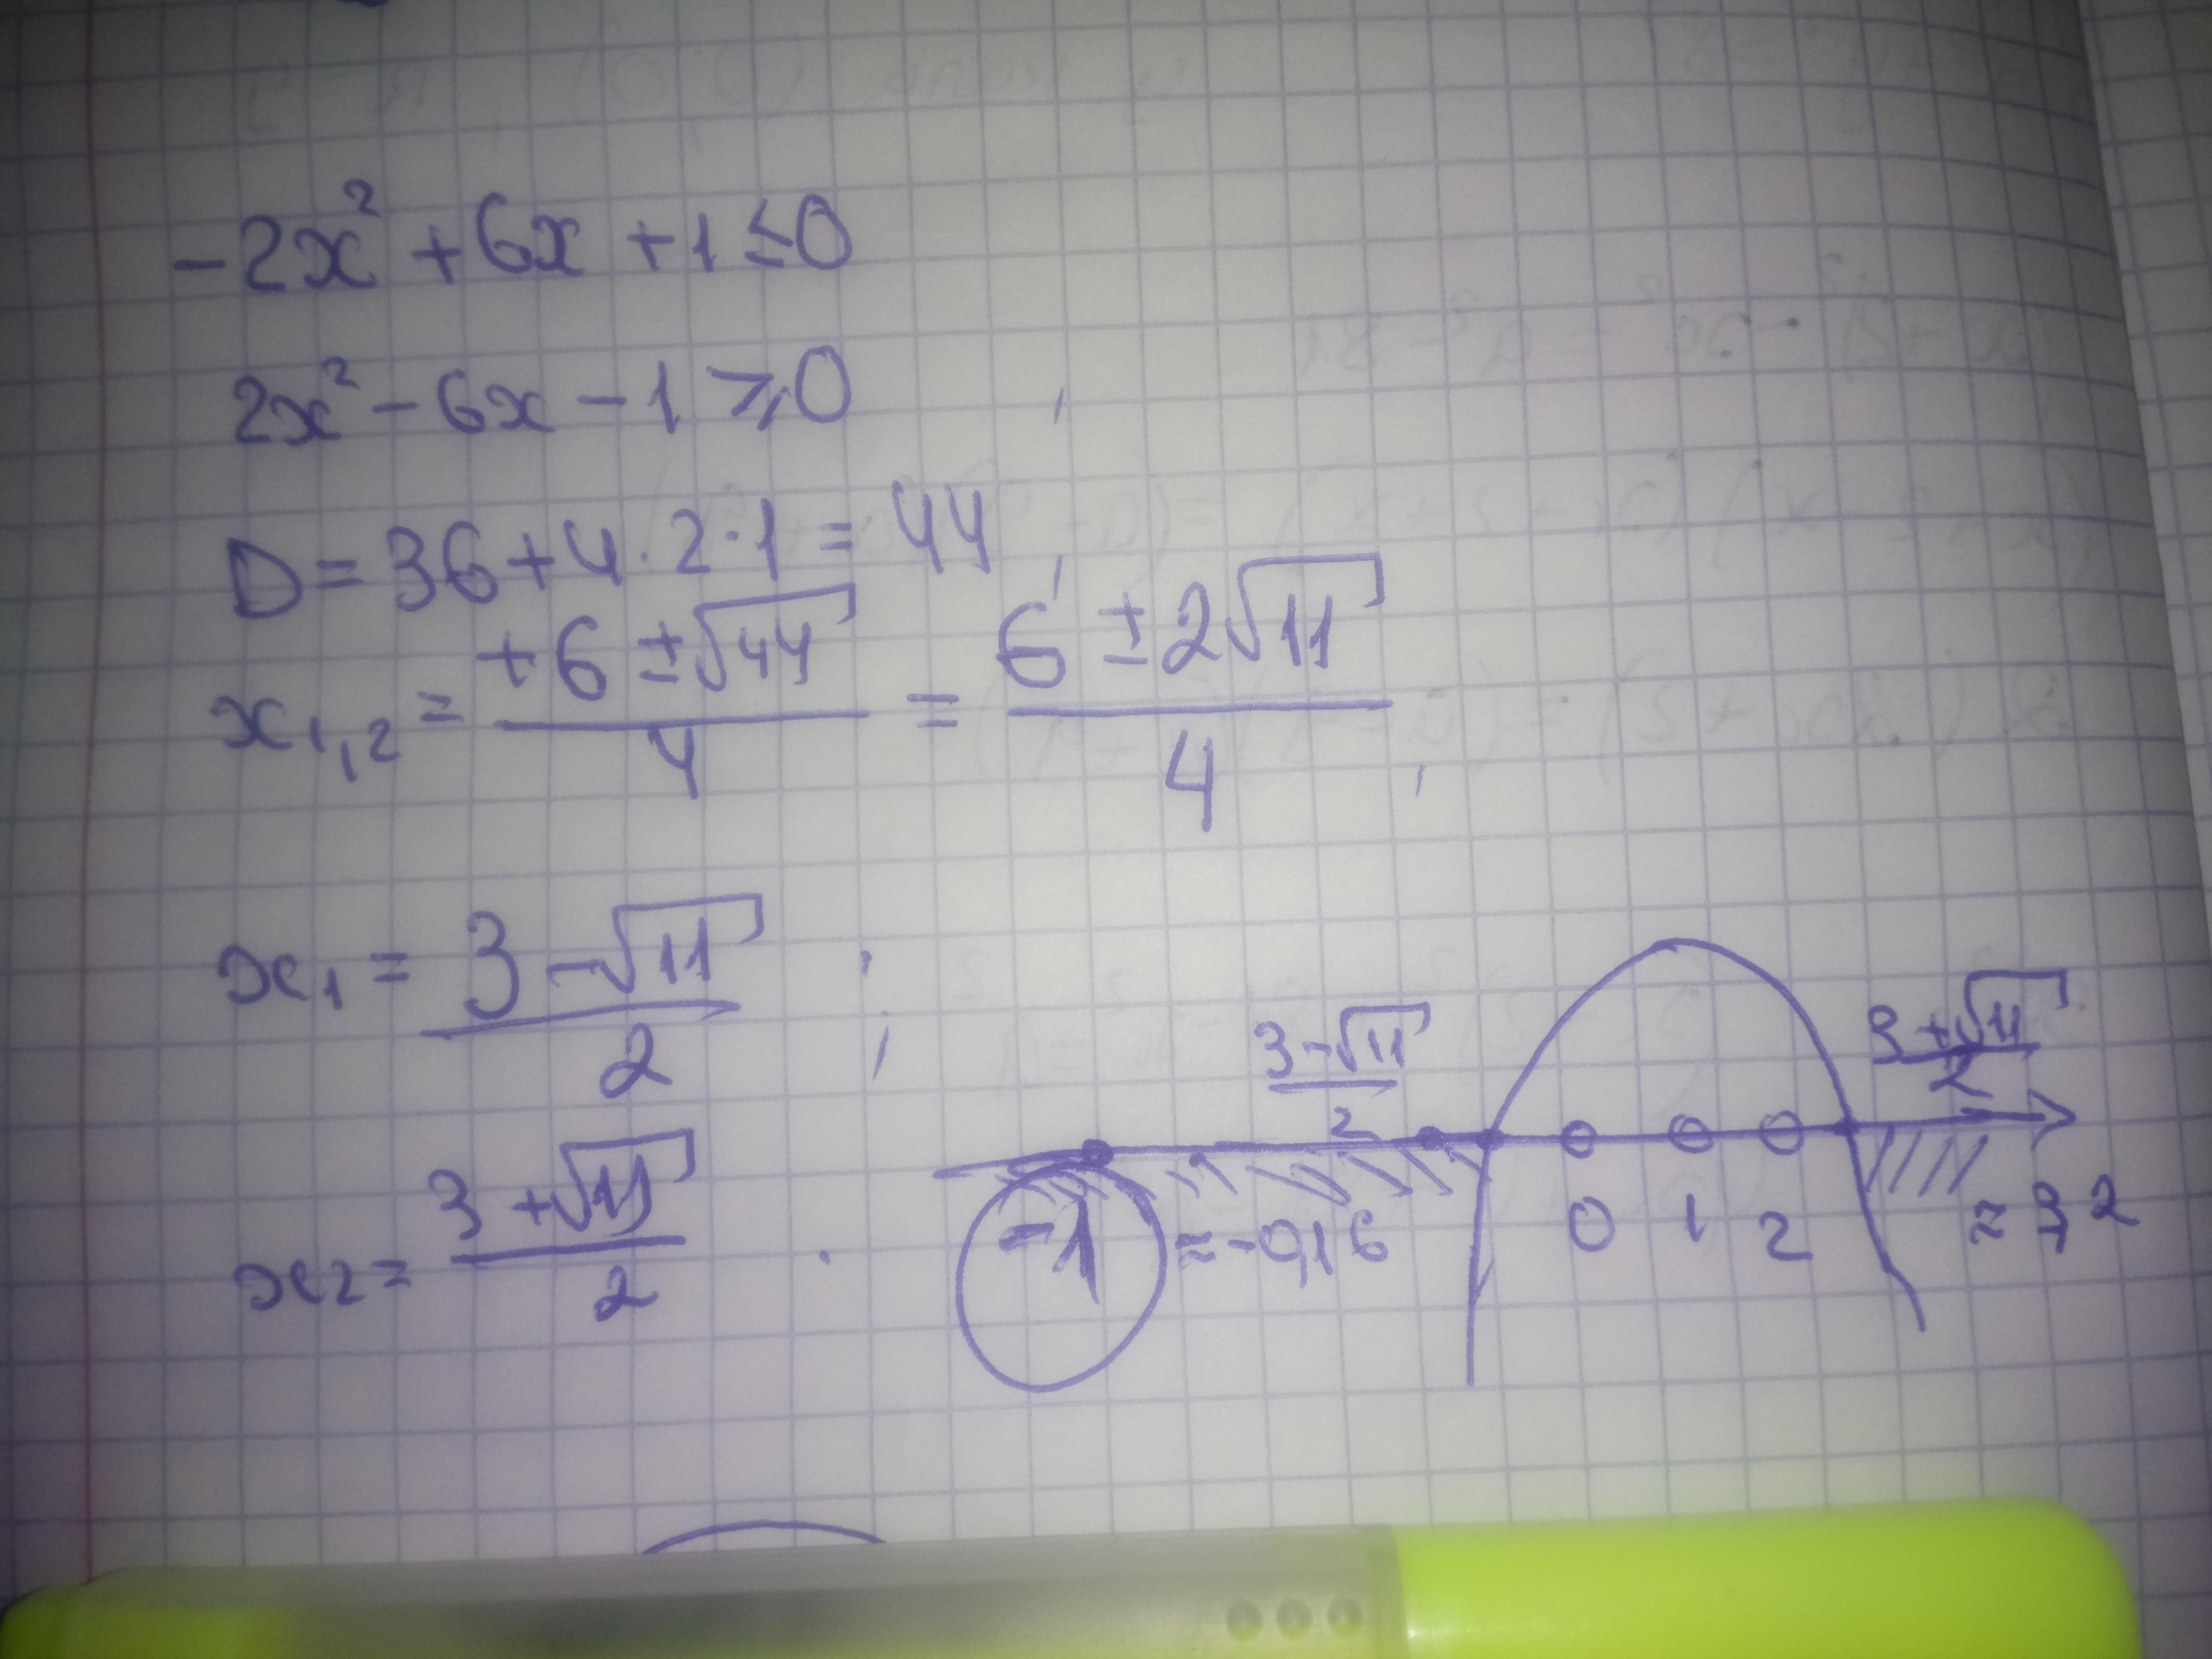 -2x² + 6x + 1 ≤ 0
2x² - 6x - 1 ⩾ 0
D = 36 + 4 · 2 · 1 = 44,
x₁,₂ = (+6 ± √44)/4 = (6 ± 2√11)/4,
x₁ = (3 - √11)/2 ;
x₂ = (3 + √11)/2 .
(3 - √11)/2 (3 + √11)/2
-1 ≈ -0,16 0 1 2 ≈ 3,2